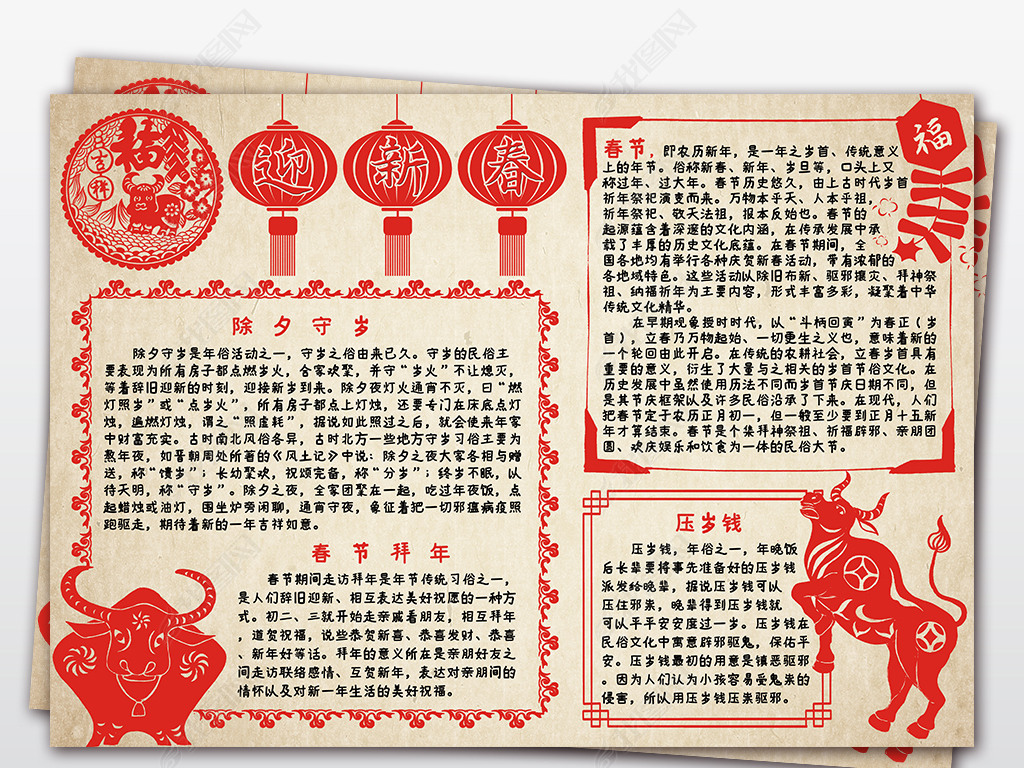 福
吉祥
迎新春
除夕守岁
除夕守岁是年俗活动之一，守岁之俗由来已久。守岁的民俗主
要表现为所有房子都点燃岁火，合家欢聚，并守“岁火”不让熄灭，
等着辞旧迎新的时刻，迎接新岁到来。除夕夜灯火通宵不灭，曰“燃
灯照岁”或“点岁火”，所有房子都点上灯烛，还要专门在床底点灯
烛，遍燃灯烛，谓之“照虚耗”，据说如此照过之后，就会使来年家
中财富充实。古时南北风俗各异，古时北方一些地方守岁习俗主要为
熬年夜，如晋朝周处所著的《风土记》中说：除夕之夜大家各相与赠
送，称“馈岁”；长幼聚欢，祝颂完备，称“分岁”；终岁不眠，以
待天明，称“守岁”。除夕之夜，全家团聚在一起，吃过年夜饭，点
起蜡烛或油灯，围坐炉旁闲聊，通宵守夜，象征着把一切邪瘟病疫照
跑驱走，期待着新的一年吉祥如意。
春节拜年
春节期间走访拜年是年节传统习俗之一，
是人们辞旧迎新、相互表达美好祝愿的一种方
式。初二、三就开始走亲戚看朋友，相互拜年
，道贺祝福，说些恭贺新喜、恭喜发财、恭喜
、新年好等话。拜年的意义所在是亲朋好友之
间走访联络感情、互贺新年，表达对亲朋间的
情怀以及对新一年生活的美好祝福。
福
春节，即农历新年，是一年之岁首、传统意义
上的年节。俗称新春、新年、岁旦等，口头上又
称过年、过大年。春节历史悠久，由上古时代岁首
祈年祭祀演变而来。万物本乎天、人本乎祖，
祈年祭祀、敬天法祖，报本反始也。春节的
起源蕴含着深邃的文化内涵，在传承发展中承
载了丰厚的历史文化底蕴。在春节期间，全
国各地均有举行各种庆贺新春活动，带有浓郁的
各地域特色。这些活动以除旧布新、驱邪攘灾、拜神祭
祖、纳福祈年为主要内容，形式丰富多彩，凝聚着中华
传统文化精华。
在早期观象授时时代，以“斗柄回寅”为春正（岁
首），立春乃万物起始、一切更生之义也，意味着新的
一个轮回由此开启。在传统的农耕社会，立春岁首具有
重要的意义，衍生了大量与之相关的岁首节俗文化。在
历史发展中虽然使用历法不同而岁首节庆日期不同，但
是其节庆框架以及许多民俗沿承了下来。在现代，人们
把春节定于农历正月初一，但一般至少要到正月十五新
年才算结束。春节是个集拜神祭祖、祈福辟邪、亲朋团
圆、欢庆娱乐和饮食为一体的民俗大节。
压岁钱
压岁钱，年俗之一，年晚饭
后长辈要将事先准备好的压岁钱
派发给晚辈，据说压岁钱可以
压住邪祟，晚辈得到压岁钱就
可以平平安安度过一岁。压岁钱在
民俗文化中寓意辟邪驱鬼，保佑平
安。压岁钱最初的用意是镇恶驱邪
。因为人们认为小孩容易受鬼祟的
侵害，所以用压岁钱压祟驱邪。